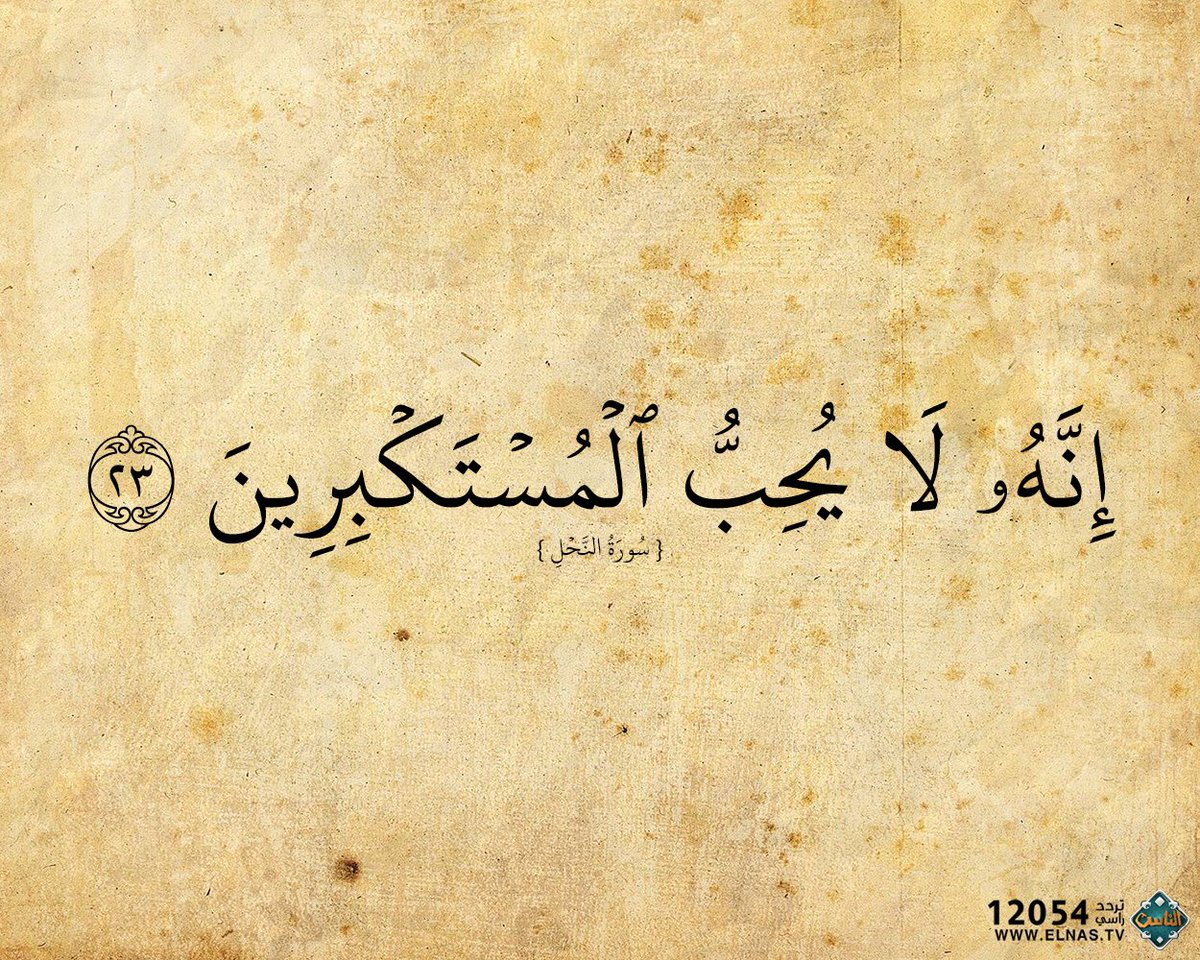 إِنَّهُۥ لَا يُحِبُّ ٱلْمُسْتَكْبِرِينَ ٢٣
{ سُورَةُ النَّحْلِ }
12054 تردد رأسي
WWW.ELNAS.TV
الناس